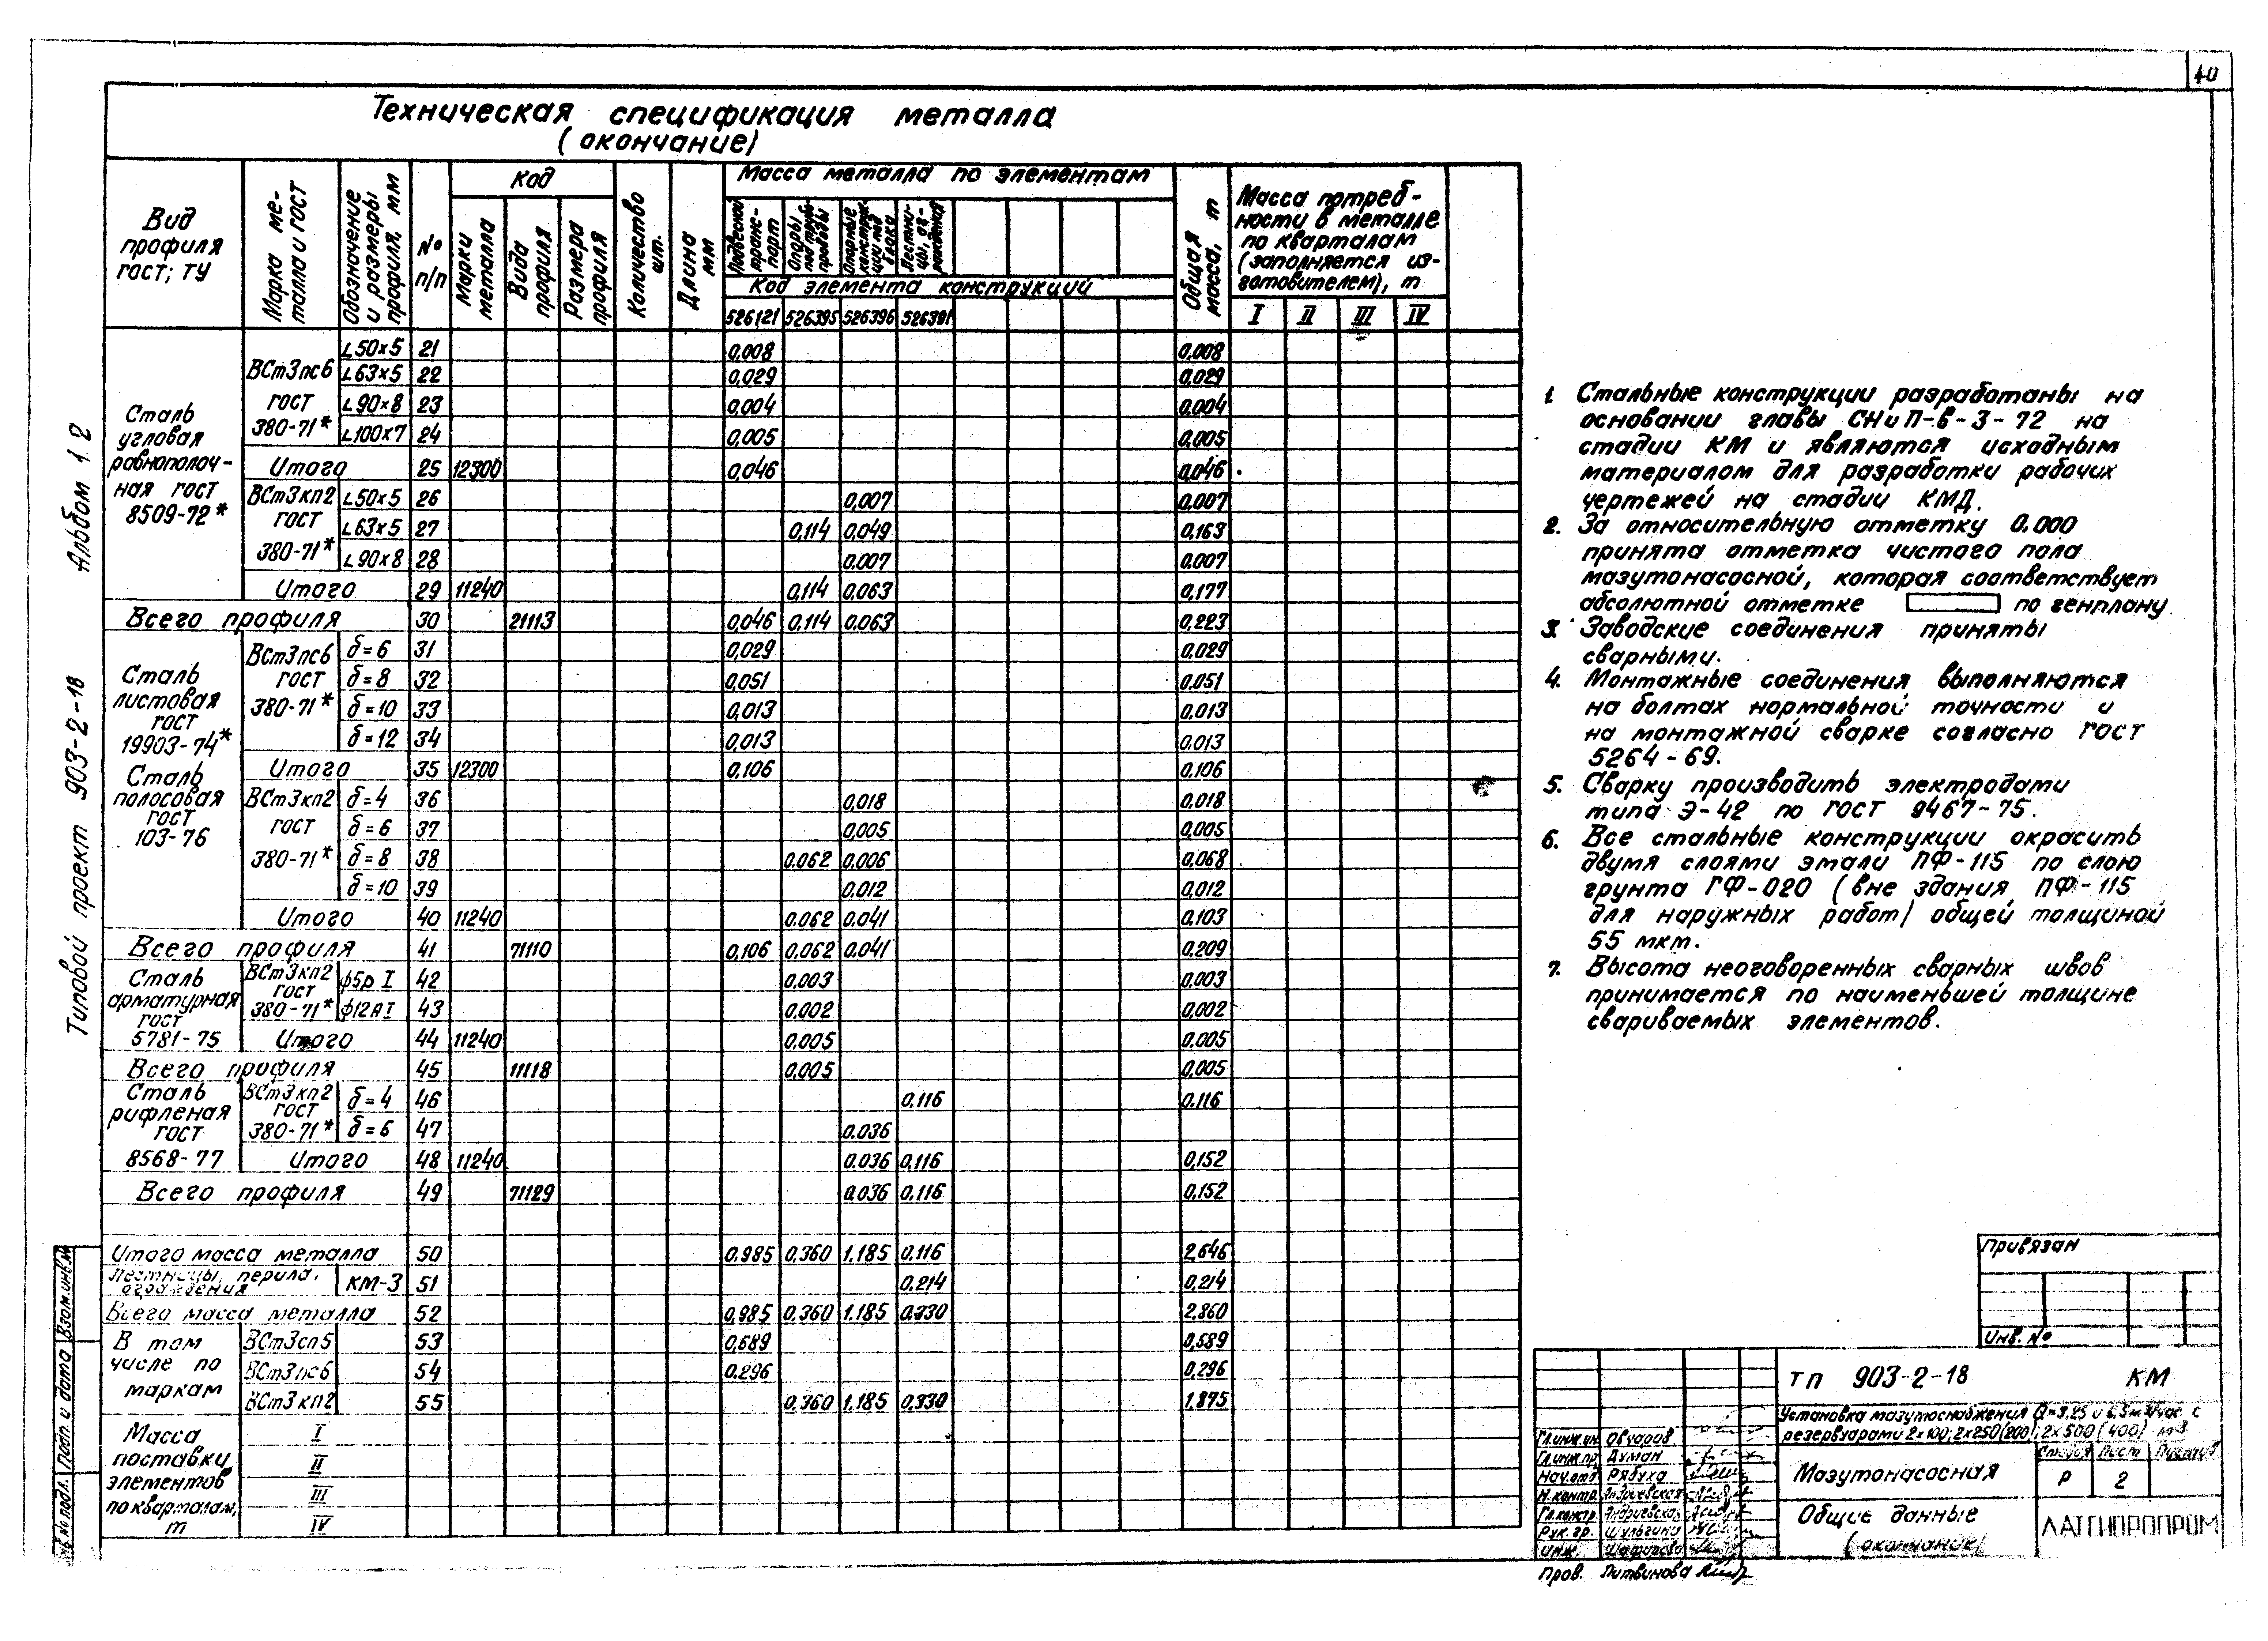 40
Техническая спецификация металла
(окончание)
Вид профиля гост; ТУ
Марка ме- талла и гост
Обозначение и размеры профиля, мм
№ п/п
Код
Марки металла
Вида профиля
Размера профиля
Количество шт.
Длина мм
Масса металла по элементам
Подвесной транс- порт
Опоры под трубо- проводы
Опорные конструк- ции под блоки
Лестни- цы, ог- раждения
Код элемента конструкций
526121 526395 526396 526391
Общая масса, т
Масса потреб-
ности в металле
по кварталам
(заполняется из-
готовителем), т
I II III IV
Сталь угловая равнополоч- ная гост 8509-72*
ВСт3пс6 гост 380-71*
L50x5 21 0,008 0,008
L63x5 22 0,029 0,029
L90x8 23 0,004 0,004
L100x7 24 0,005 0,005
Итого 25 12300 0,046 0,046
ВСт3кп2 гост 380-71*
L50x5 26 0,007 0,007
L63x5 27 0,114 0,049 0,163
L90x8 28 0,007 0,007
Итого 29 11240 0,114 0,063 0,177
Всего профиля 30 21113 0,046 0,114 0,063 0,223
Сталь листовая гост 19903-74*
Сталь полосовая гост 103-76
ВСт3пс6 гост 380-71*
δ=6 31 0,029 0,029
δ=8 32 0,051 0,051
δ=10 33 0,013 0,013
δ=12 34 0,013 0,013
Итого 35 12300 0,106 0,106
ВСт3кп2 гост 380-71*
δ=4 36 0,018 0,018
δ=6 37 0,005 0,005
δ=8 38 0.062 0,006 0,068
δ=10 39 0.012 0,012
Итого 40 11240 0.062 0.041 0.103
Всего профиля 41 71110 0,106 0.062 0.041 0.209
Сталь арматурная гост 5781-75
ВСт3кп2 гост 380-71*
ф5рI 42 0.003 0,003
ф12АI 43 0.002 0,002
Итого 44 11240 0.005 0.005
Всего профиля 45 11118 0.005 0,005
Сталь рифленая гост 8568-77
ВСт3кп2 гост 380-71*
δ=4 46 0,116 0.116
δ=6 47 0.036
Итого 48 11240 0.036 0,116 0,152
Всего профиля 49 71129 0.036 0,116 0,152
Итого масса металла 50 0.985 0,360 1.185 0.116 2,646
Лестницы, перила, ограждения КМ-3 51 0,214 0,214
Всего масса металла 52 0,985 0,360 1.185 0.330 2,860
В том числе по маркам
ВСт3сп5 53 0,689 0,689
ВСт3пс6 54 0.296 0,296
ВСт3кп2 55 0,360 1,185 0,330 1.875
Масса поставки элементов по кварталам, т
I
II
III
IV
1. Стальные конструкции разработаны на
основании главы СНиП-в-3-72 на
стадии КМ и являются исходным
материалом для разработки рабочих
чертежей на стадии КМД.
2. За относительную отметку 0.000
принята отметка чистого пола
мазутонасосной, которая соответствует
абсолютной отметке по генплану.
3. Заводские соединения приняты
сварными.
4. Монтажные соединения выполняются
на болтах нормальной точности и
на монтажной сварке согласно гост
5264-69.
5. Сварку производить электродами
типа Э-42 по гост 9467-75.
6. Все стальные конструкции окрасить
двумя слоями эмали ПФ-115 по слою
грунта ГФ-020 (вне здания ПФ-115
для наружных работ) общей толщиной
55 мкм.
7. Высота неоговоренных сварных швов
принимается по наименьшей толщине
свариваемых элементов.
Привязан
Инв. №
ТП 903-2-18 КМ
Установка мазутоснабжения Q=3,25 и 6,5 м³/час с
резервуарами 2x100; 2x250(200); 2x500(400) м³
Мазутонасосная
Стадия Лист Листов
Р 2
Общие данные
(окончание)
ЛАТГИПРОПРОМ
Гл.инж.ин. Овчаров
Гл.инж.пр. Думан
Нач.отд. Рябуха
Н.контр. Андриевская
Гл.констр. Андриевская
Рук.гр. Шульгина
Инж.
Пров. Литвинова
Альбом 1.2
Типовой проект 903-2-18
Взам.инв.№
Подп. и дата
Инв.№ подл.